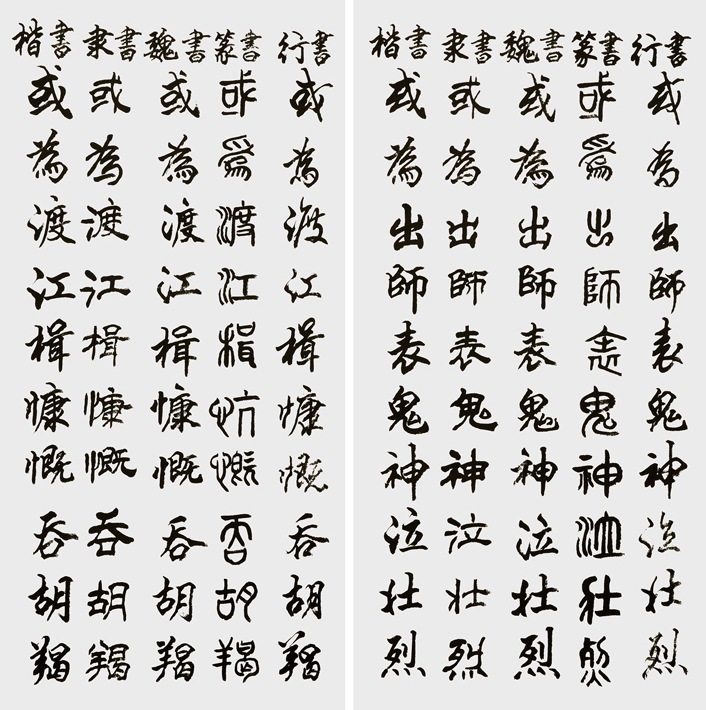 楷書
或為渡江楫慷慨吞胡羯
隶書
或為渡江楫慷慨吞胡羯
魏書
或為渡江楫慷慨吞胡羯
篆書
或為渡江楫慷慨吞胡羯
行書
或為渡江楫慷慨吞胡羯
楷書
或為出師表鬼神泣壮烈
隶書
或為出師表鬼神泣壮烈
魏書
或為出師表鬼神泣壮烈
篆書
或為出師表鬼神泣壮烈
行書
或為出師表鬼神泣壮烈